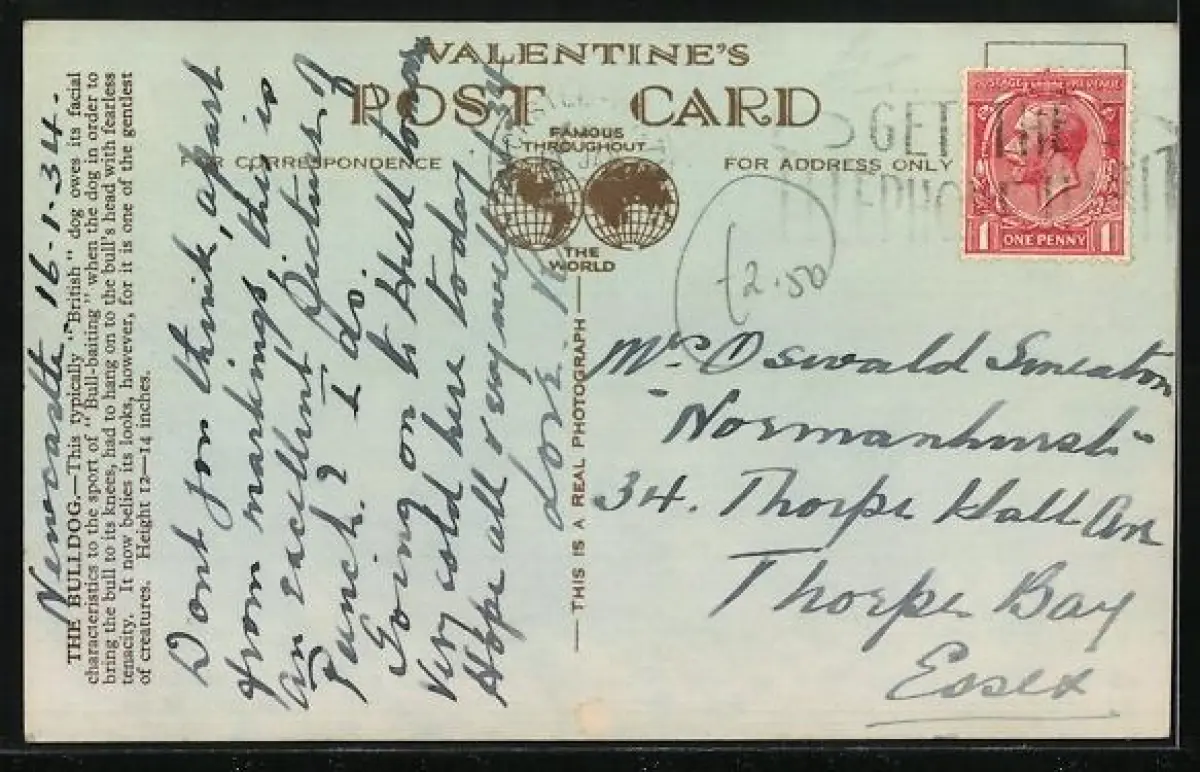 VALENTINE'S
POST CARD
FAMOUS
THROUGHOUT
THE
WORLD
FOR CORRESPONDENCE
FOR ADDRESS ONLY
THIS IS A REAL PHOTOGRAPH
THE BULLDOG.—This typically "British" dog owes its facial
characteristics to the sport of "Bull-baiting" when the dog in order to
bring the bull to its knees, had to hang on to the bull's head with fearless
tenacity. It now belies its looks, however, for it is one of the gentlest
of creatures. Height 12—14 inches.
Newcastle 16-1-34.
Dont you think, apart
from markings this is
an excellent picture of
Punch? I do.
Going on to Hull tomorrow
Very cold here today
Hope all very well
Love
GET
POSTAGE REVENUE
1 ONE PENNY 1
£2.50
Mr Oswald Smeaton
"Normanhurst"
34. Thorpe Hall Ave
Thorpe Bay
Essex